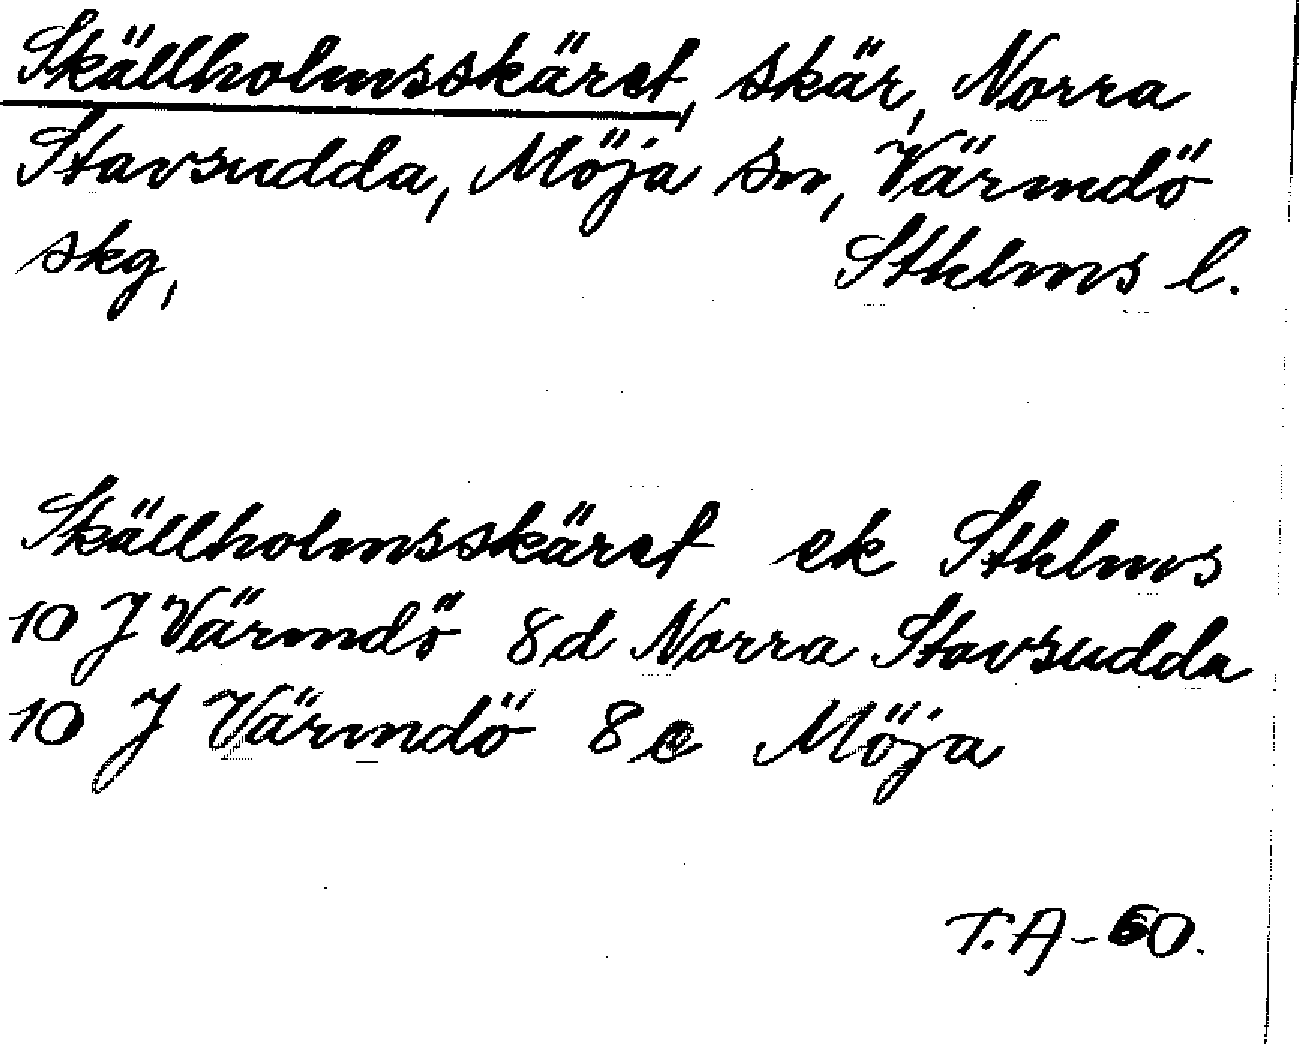 Skällholmsskäret, skär, Norra
Stavsudda, Möja sn, Värmdö
skg, Sthlms l.
Skällholmsskäret ek Sthlms
10 J Värmdö 8d Norra Stavsudda
10 J Värmdö 8e Möja
T.A-60.